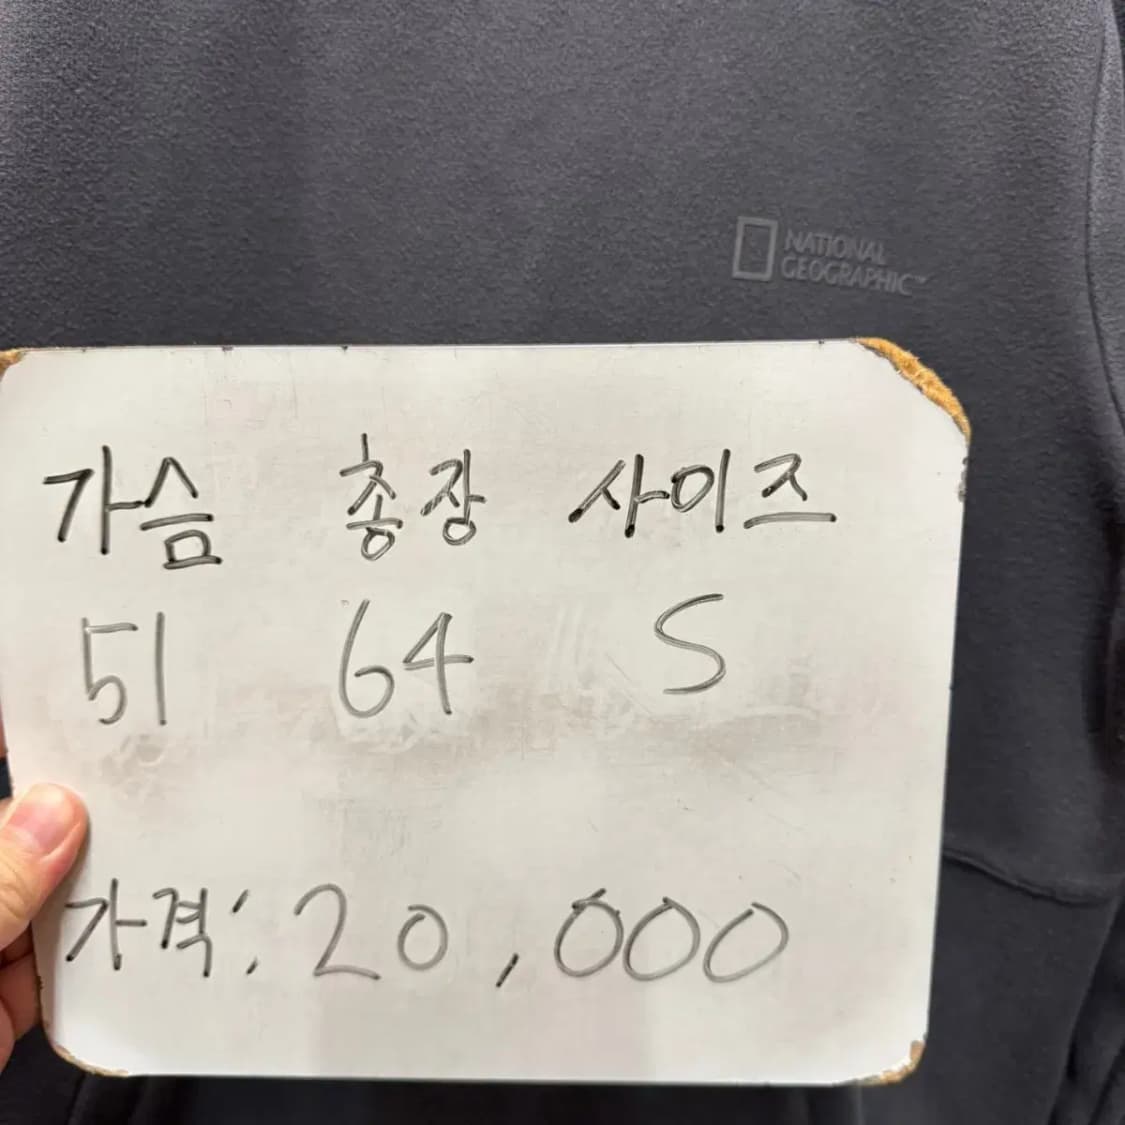 NATIONAL
GEOGRAPHIC™
가슴 총장 사이즈
51 64 S
가격: 20,000